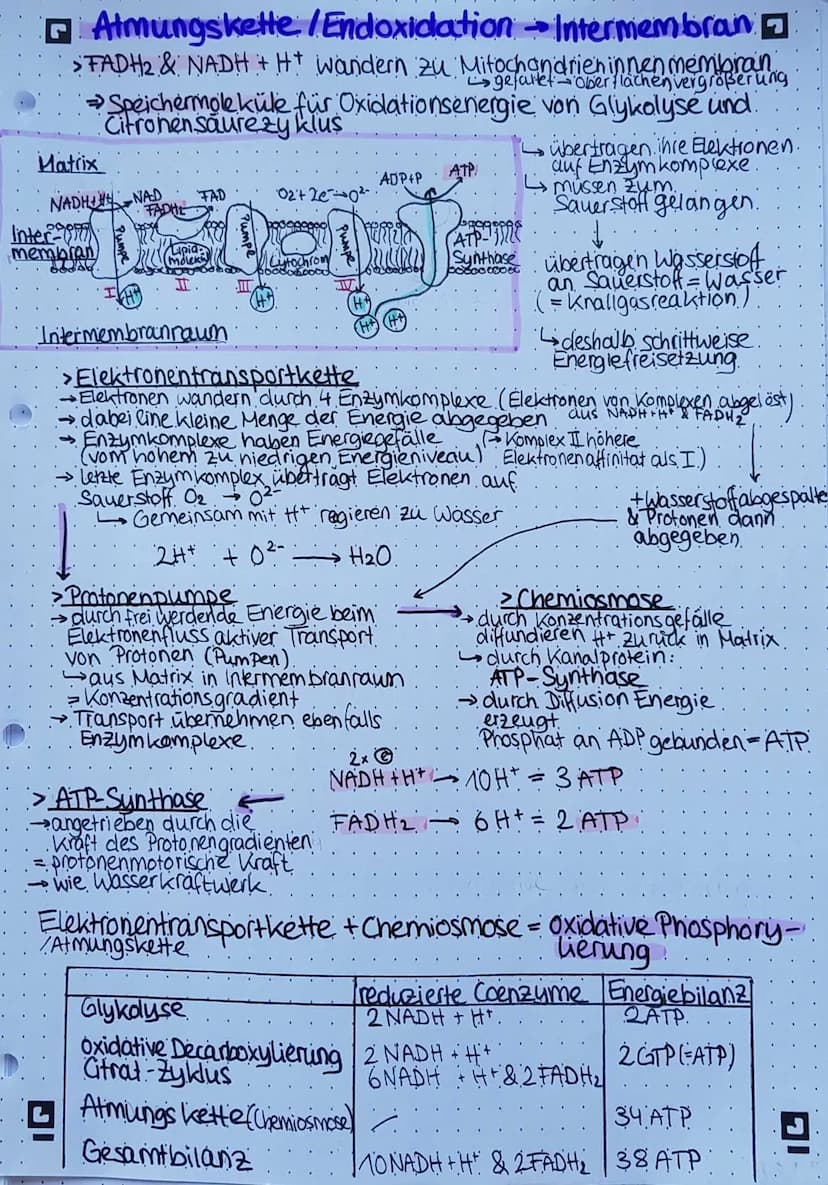 Atmungskette/Endoxidation → Intermembran
> FADH2 & NADH + H+ wandern zu Mitochondrieninnenmembran
↳ gefaltet → Oberflächenvergrößerung
⇒ Speichermoleküle für Oxidationsenergie von Glykolyse und
Citronensäurezyklus
Matrix
NADH+H+ NAD
FADH2 FAD
O2 + 2e- → O2-
ADP+P ATP
Inter-
membran
Pumpe
Lipid-
molekül
Pumpe
Cytochrom
Pumpe
ATP-
Synthase
I II III IV
H+ H+ H+ H+ H+
Intermembranraum
↳ übertragen ihre Elektronen
auf Enzymkomplexe
↳ müsen zum
Sauerstoff gelangen
↓
übertragen Wasserstoff
an Sauerstoff = Wasser
(= Knallgasreaktion)
↳ deshalb schrittweise
Energiefreisetzung
> Elektronentransportkette
→ Elektronen wandern durch 4 Enzymkomplexe (Elektronen von Komplexen abgelöst)
aus NADH+H+ & FADH2
→ dabei eine kleine Menge der Energie abgegeben
→ Enzymkomplexe haben Energiegefälle
(vom hohem zu niedrigen Energieniveau)
(→ Komplex II höhere
Elektronenaffinität als I.)
→ letzte Enzymkomplex überträgt Elektronen auf
Sauerstoff O2 → O2-
↳ Gemeinsam mit H+ regieren zu Wasser
2H+ + O2- → H2O
+ Wasserstoff abgespalte
& Protonen dann
abgegeben
> Protonenpumpe
→ durch frei werdende Energie beim
Elektronenfluss aktiver Transport
von Protonen (Pumpen)
↳ aus Matrix in Intermembranraum
= Konzentrationsgradient
→ Transport übernehmen ebenfalls
Enzymkomplexe
> Chemiosmose
→ durch Konzentrationsgefälle
diffundieren H+ zurück in Matrix
↳ durch Kanalprotein:
ATP-Synthase
→ durch Diffusion Energie
erzeugt
Phosphat an ADP gebunden = ATP
2x e
NADH+H+ → 10H+ = 3 ATP
FADH2 → 6H+ = 2 ATP
> ATP-Synthase ←
→ angetrieben durch die
Kraft des Protonengradienten
= protonenmotorische Kraft
→ wie Wasserkraftwerk
Elektronentransportkette + Chemiosmose = oxidative Phosphory-
/Atmungskette lierung
reduzierte Coenzyme Energiebilanz
Glykolyse 2 NADH + H+ 2 ATP
oxidative Decarboxylierung 2 NADH + H+ 2 GTP (=ATP)
Citrat-Zyklus 6 NADH + H+ & 2 FADH2
Atmungskette (Chemiosmose) / 34 ATP
Gesamtbilanz 10 NADH + H+ & 2 FADH2 38 ATP